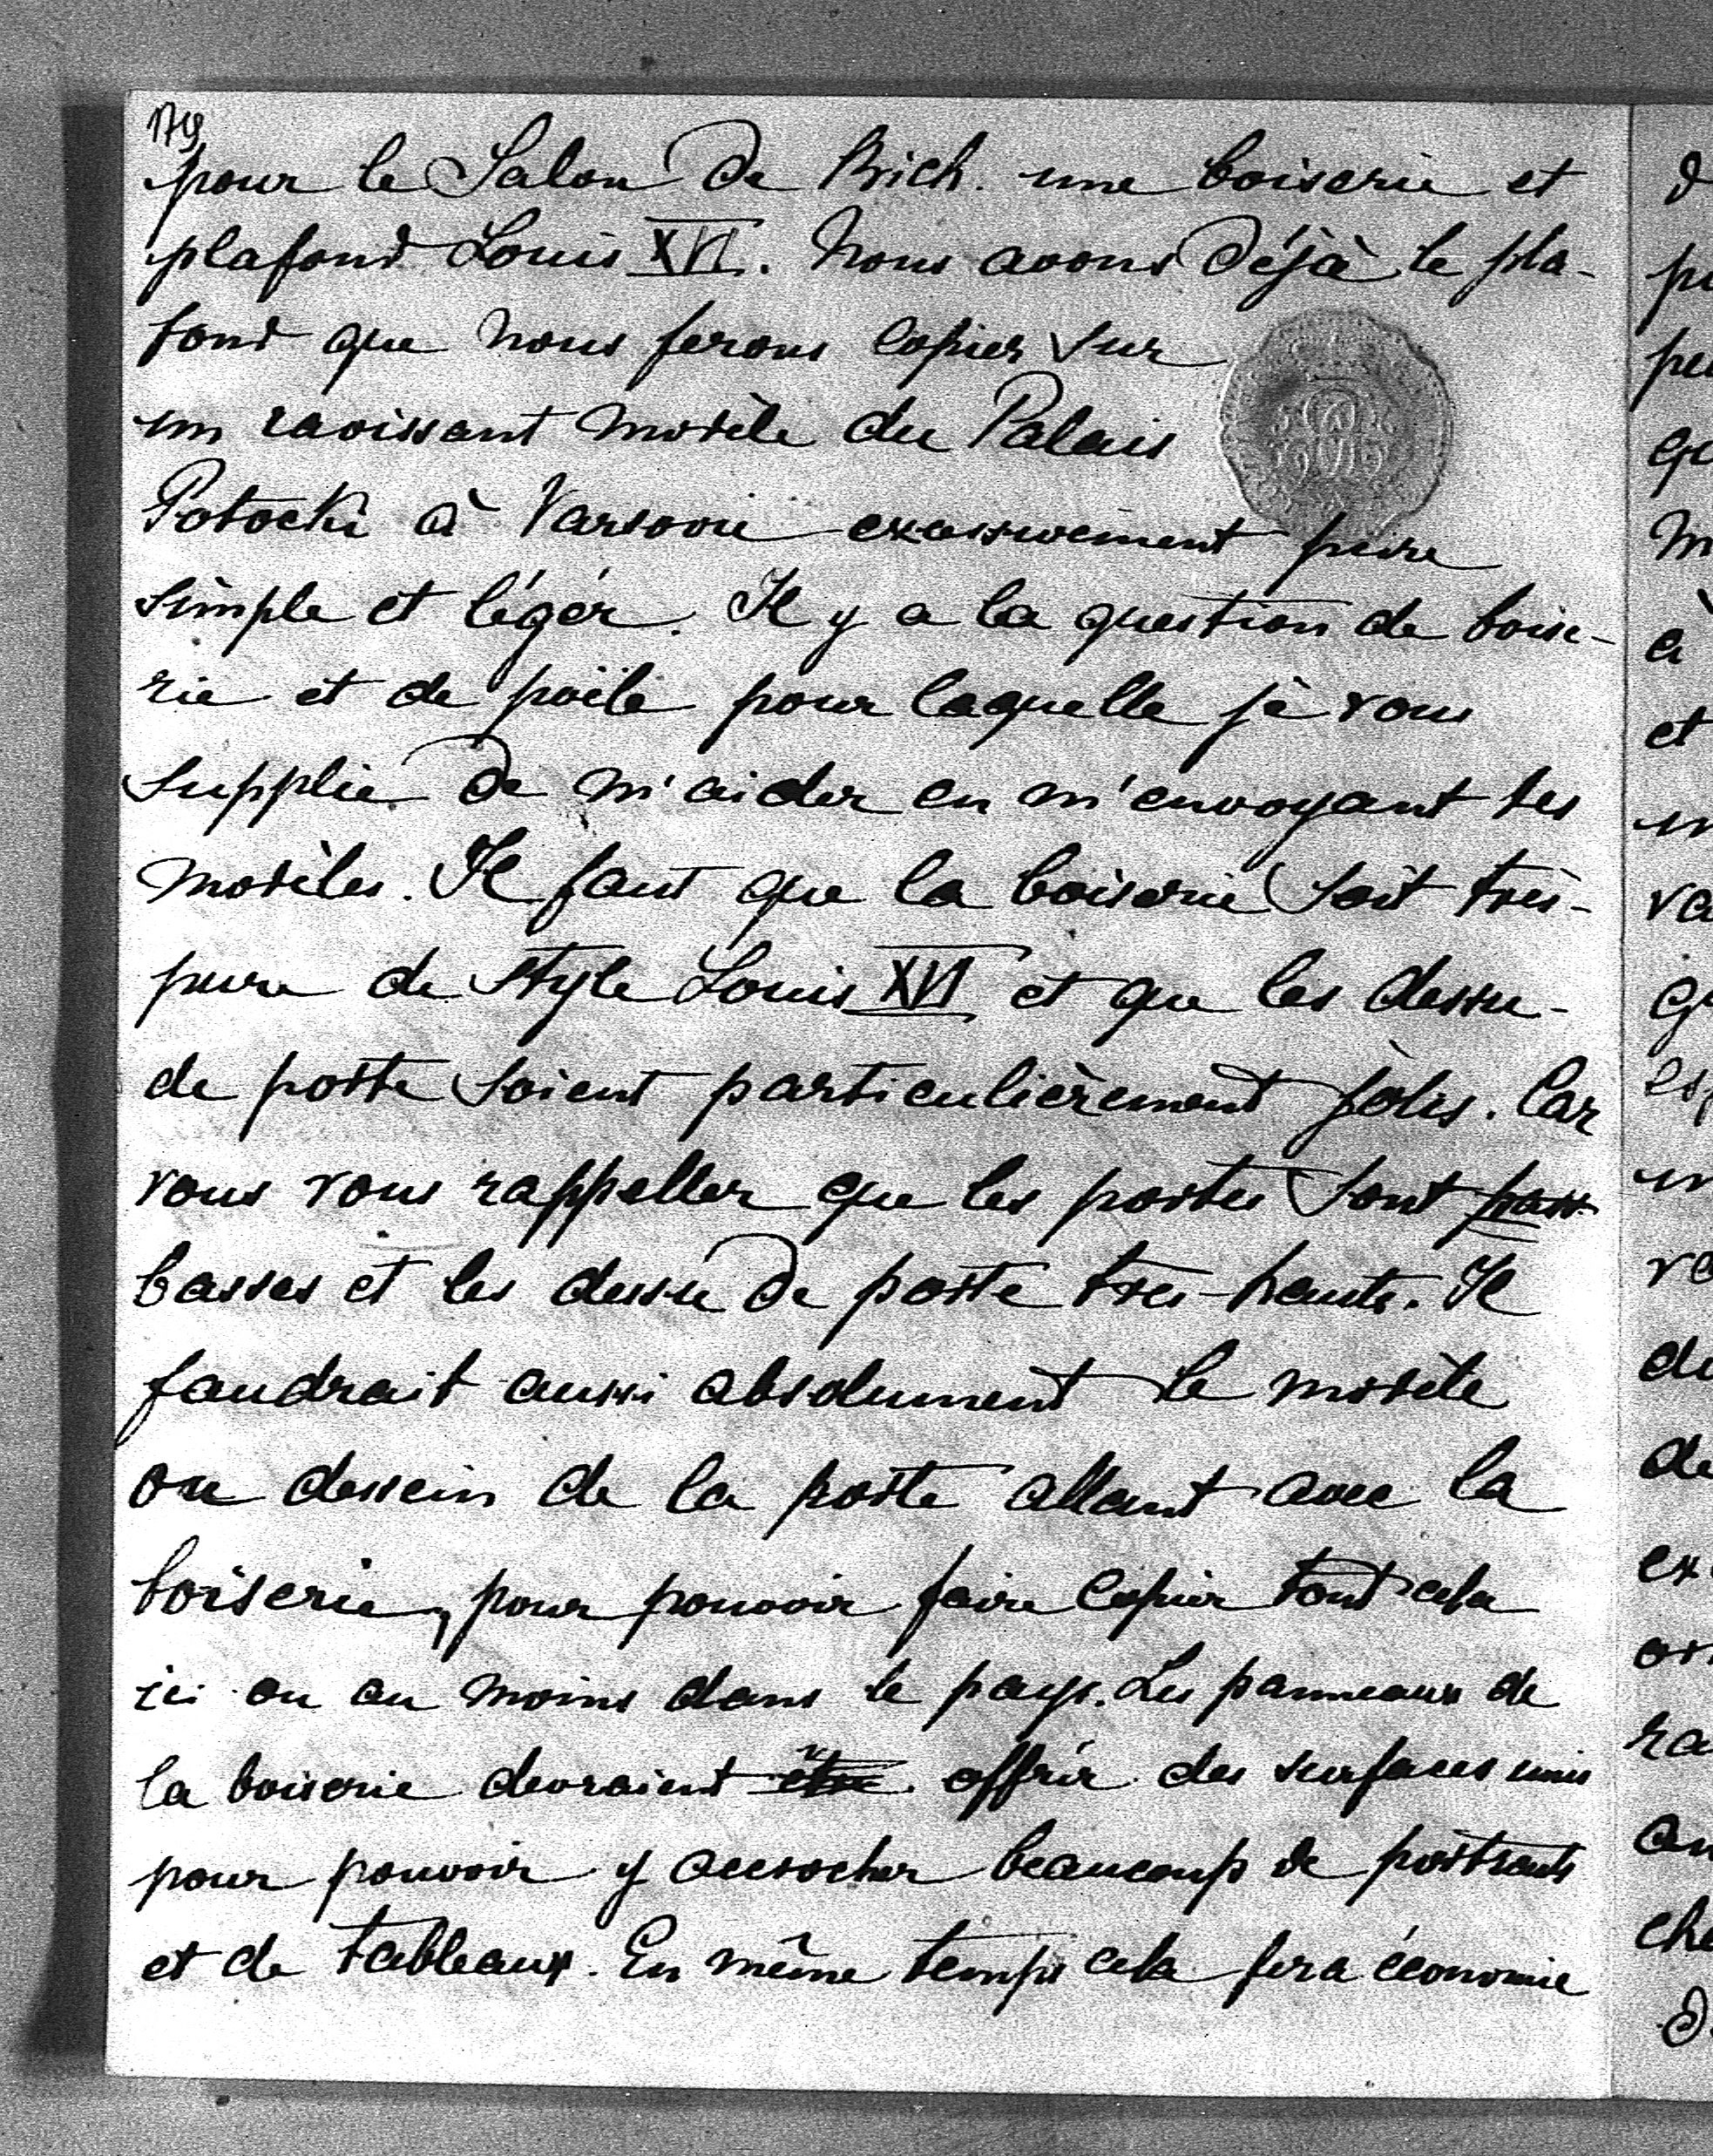 179
pour le Salon de Brich. une boiserie et
plafond Louis XVI. Nous avons déjà le pla-
fond que nous ferons copier sur
un ravissant modèle du Palais
Potocki à Varsovie excessivement pure
simple et légér. Il y a la question de boise-
rie et de poële pour laquelle je vous
supplie de m'aider en m'envoyant les
modèles. Il faut que la boiserie soit très-
pure de style Louis XVI et que les dessu-
de porte soient particulièrement jolis. Car
vous vous rappeller que les portes sont
basses et les dessu de porte très-haute. Il
faudrait aussi absolument le modèle
ou dessein de la porte allant avec la
boiserie, pour pouvoir faire copier tout cela
ici ou au moins dans le pays. Les panneaux de
la boiserie devraient être offrir des surfaces unis
pour pouvoir y accrocher beaucoup de portraits
et de tableaux. En même temps cela fera économie